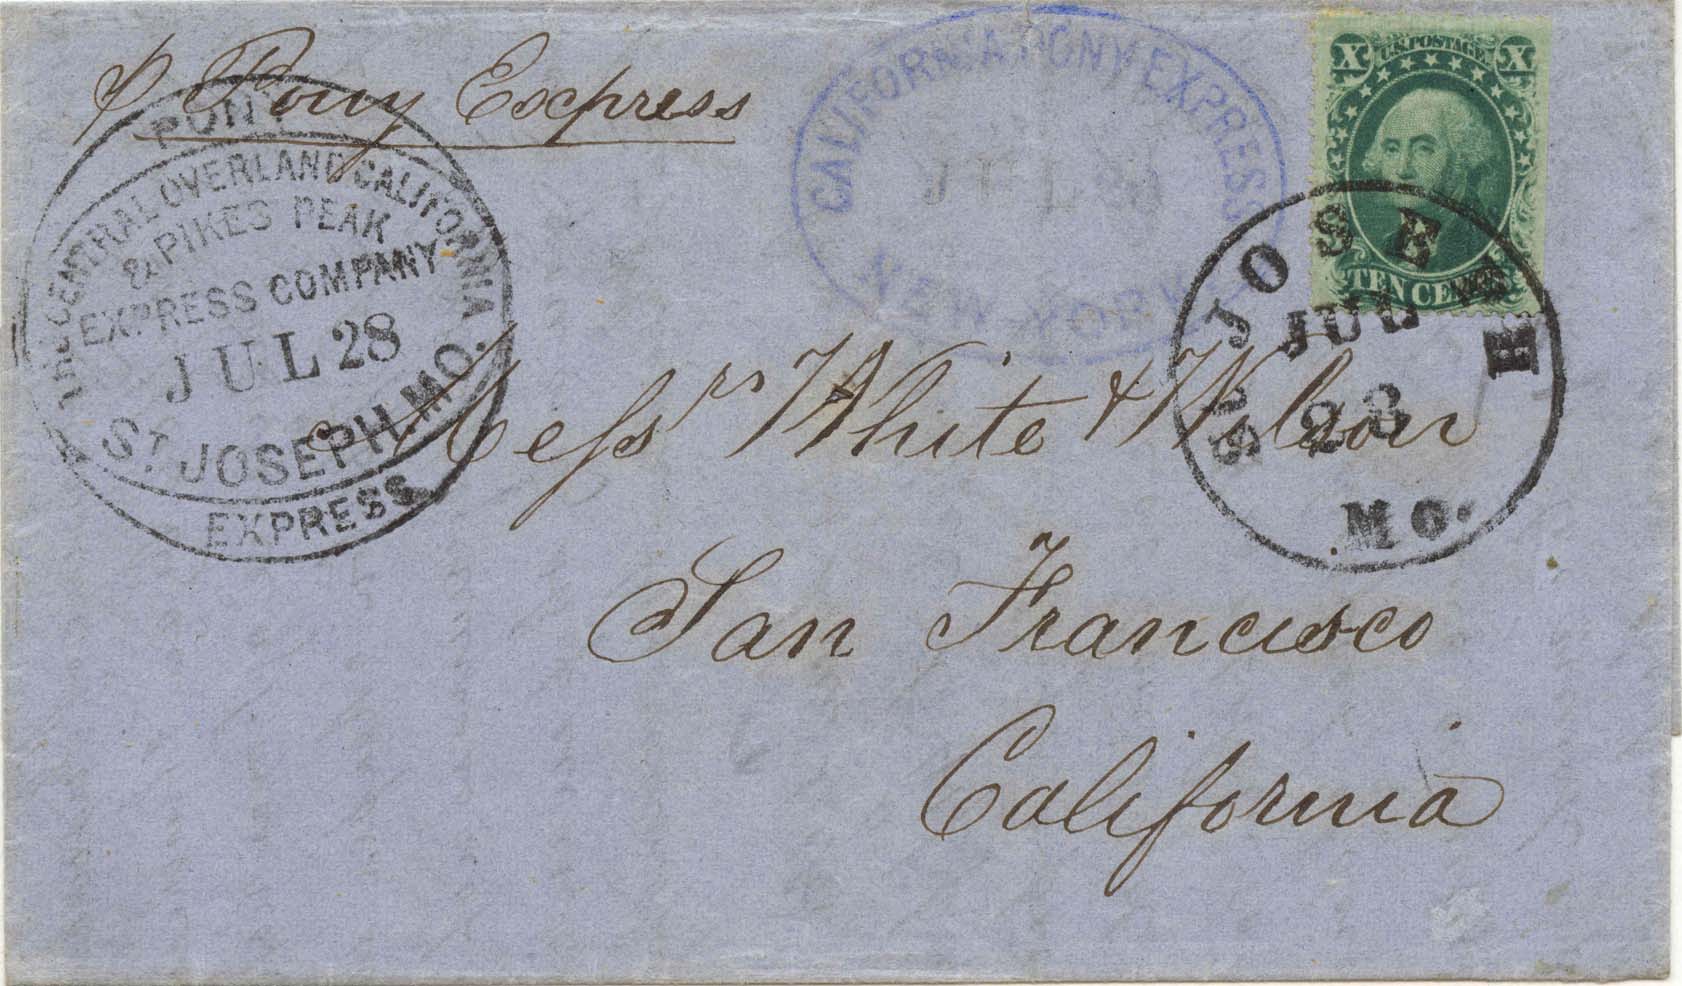 p Pony Express
PONY
THE CENTRAL OVERLAND CALIFORNIA
& PIKES PEAK
EXPRESS COMPANY
JUL 28
ST. JOSEPH MO.
EXPRESS
CALIFORNIA PONY EXPRESS
NEW-YORK
X U.S. POSTAGE X
TEN CENTS
ST JOSEPH
JUL
28
MO.
Messrs White & Wilson
San Francisco
California